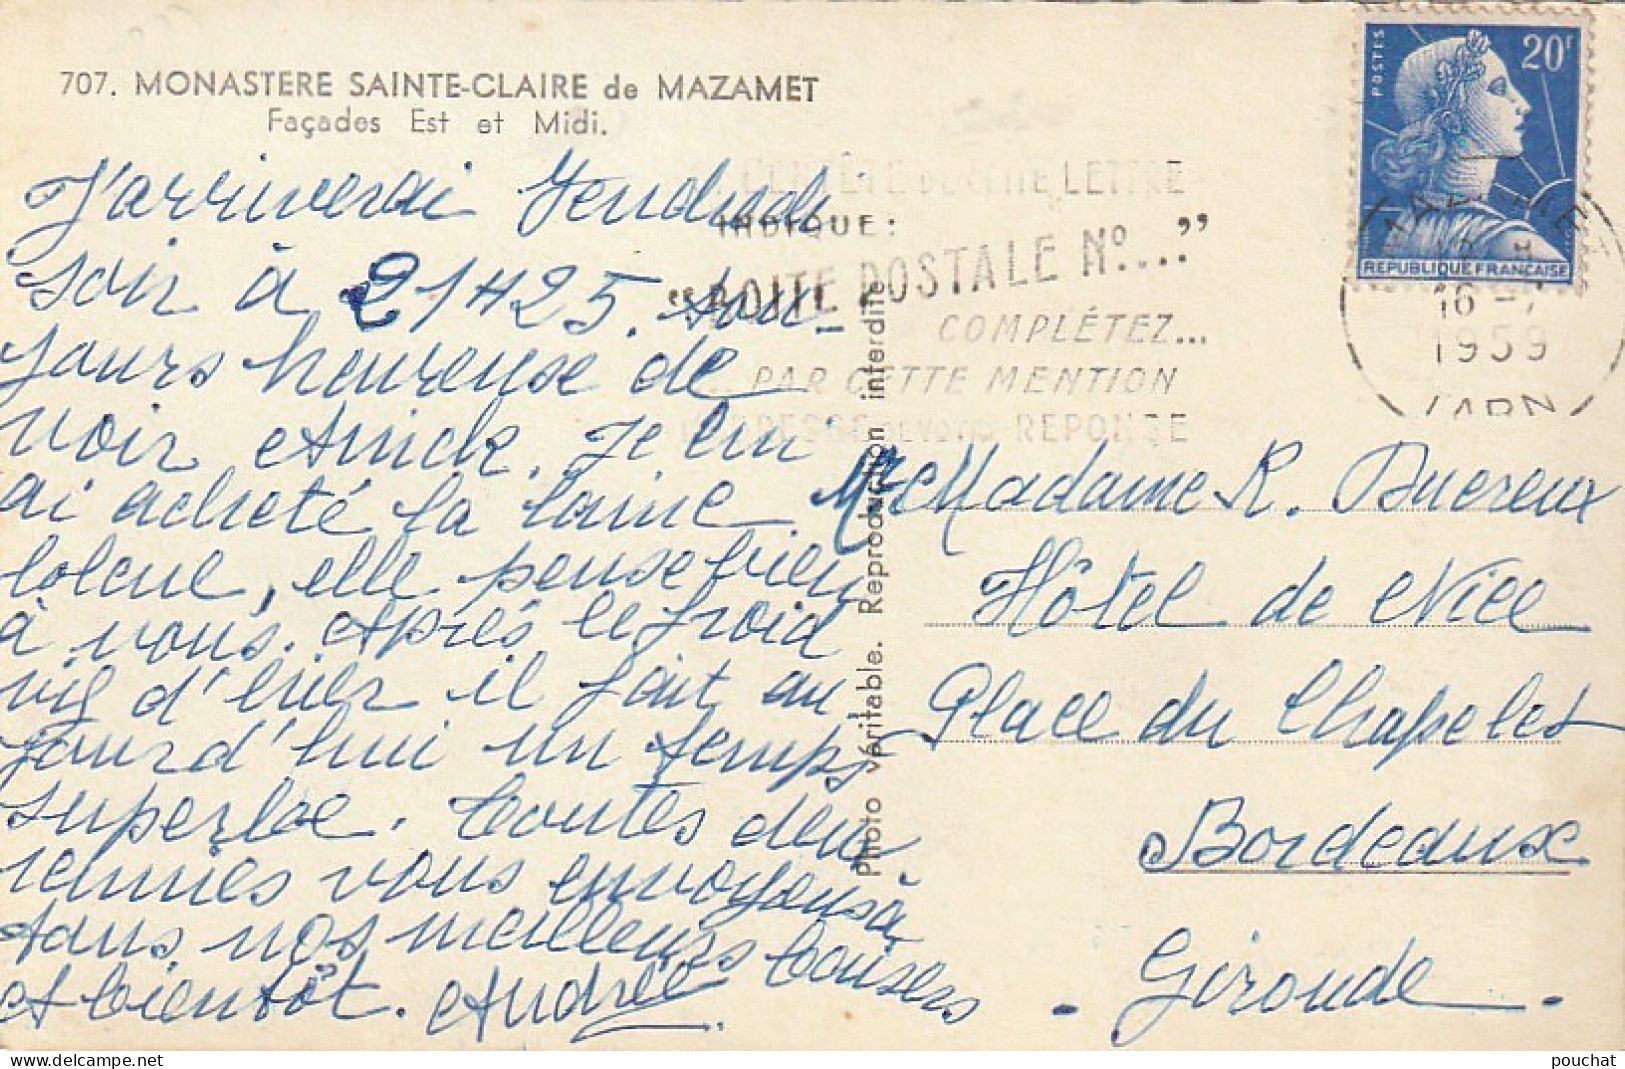 707. MONASTERE SAINTE-CLAIRE de MAZAMET
Façades Est et Midi.
J'arriverai Vendredi
soir à 21H25. Tou-
jours heureuse de
voir Anick. Je lui
ai acheté la laine
bleue, elle pense bien
à vous. Après le froid
vif d'hier il fait au
jourd'hui un temps
superbe. Toutes deux
réunies vous envoyons à
tous nos meilleurs baisers
A bientôt. Andrée
Photo véritable. Reproduction interdite
LETTRE
INDIQUE:
"BOITE POSTALE No...."
COMPLÉTEZ...
PAR CETTE MENTION
REPONSE
POSTES
20F
REPUBLIQUE FRANÇAISE
MAZAMET
16 -
1959
TARN
Mr Madame R. Ducreux
Hôtel de Nice
Place du Chapelet
Bordeaux
- Gironde -
pouchat